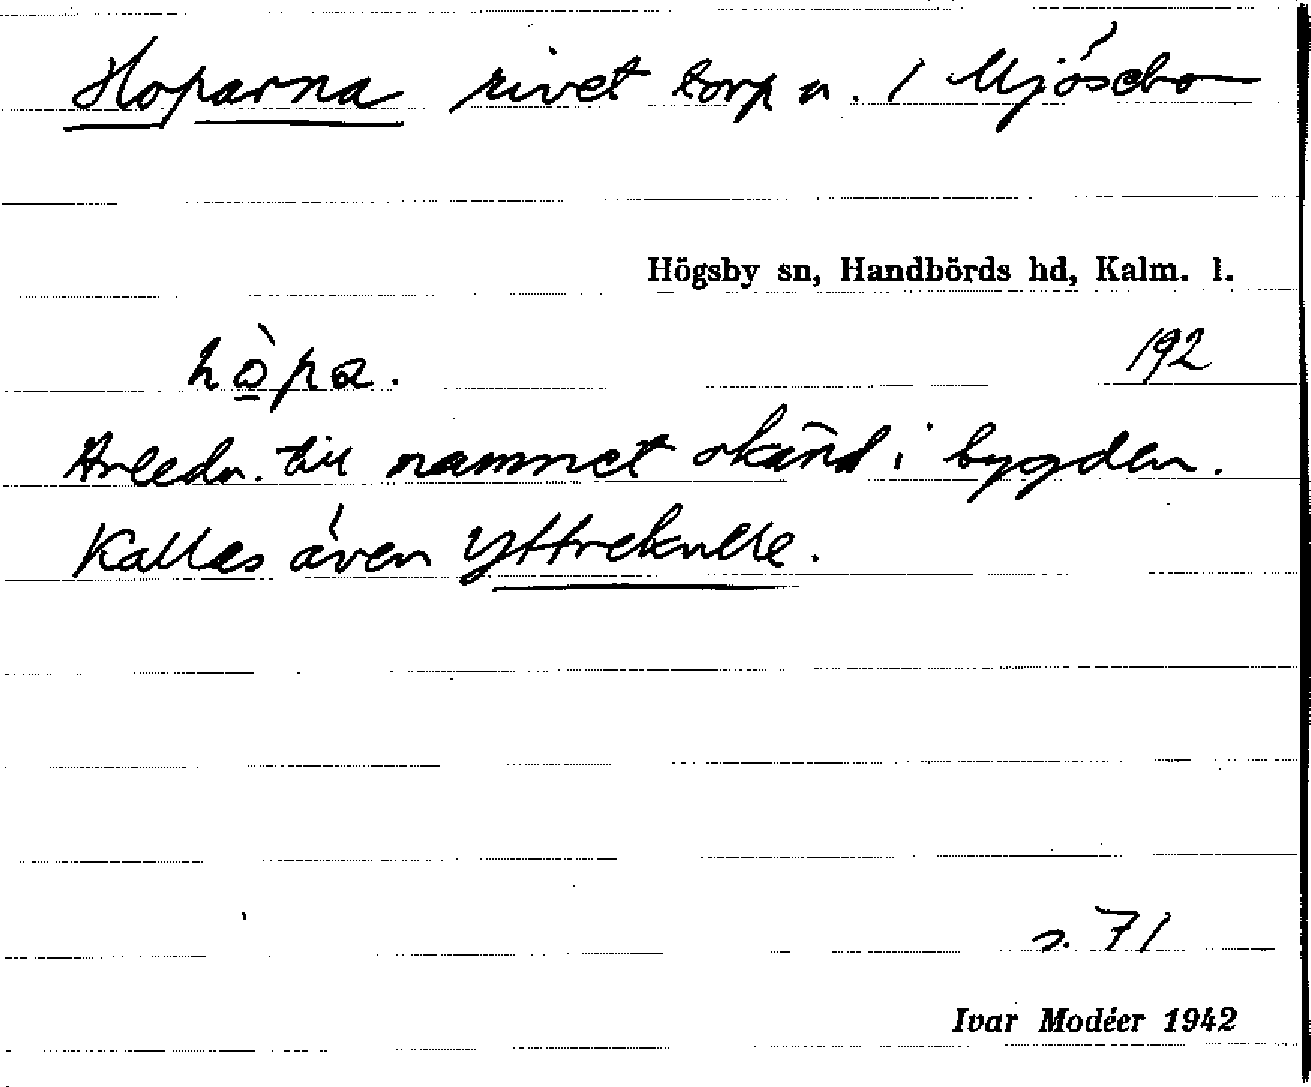 Hoparna rivet torp u. 1 Mjösebo
Högsby sn, Handbörds hd, Kalm. l.
hò̱pa.
192
Anledn. till namnet okänd i bygden.
Kallas även Yttrekulle.
s. 71
Ivar Modéer 1942